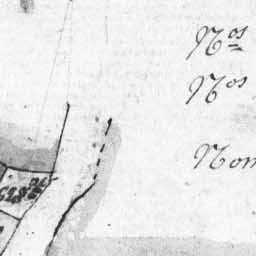 Nos
Nos
Nom